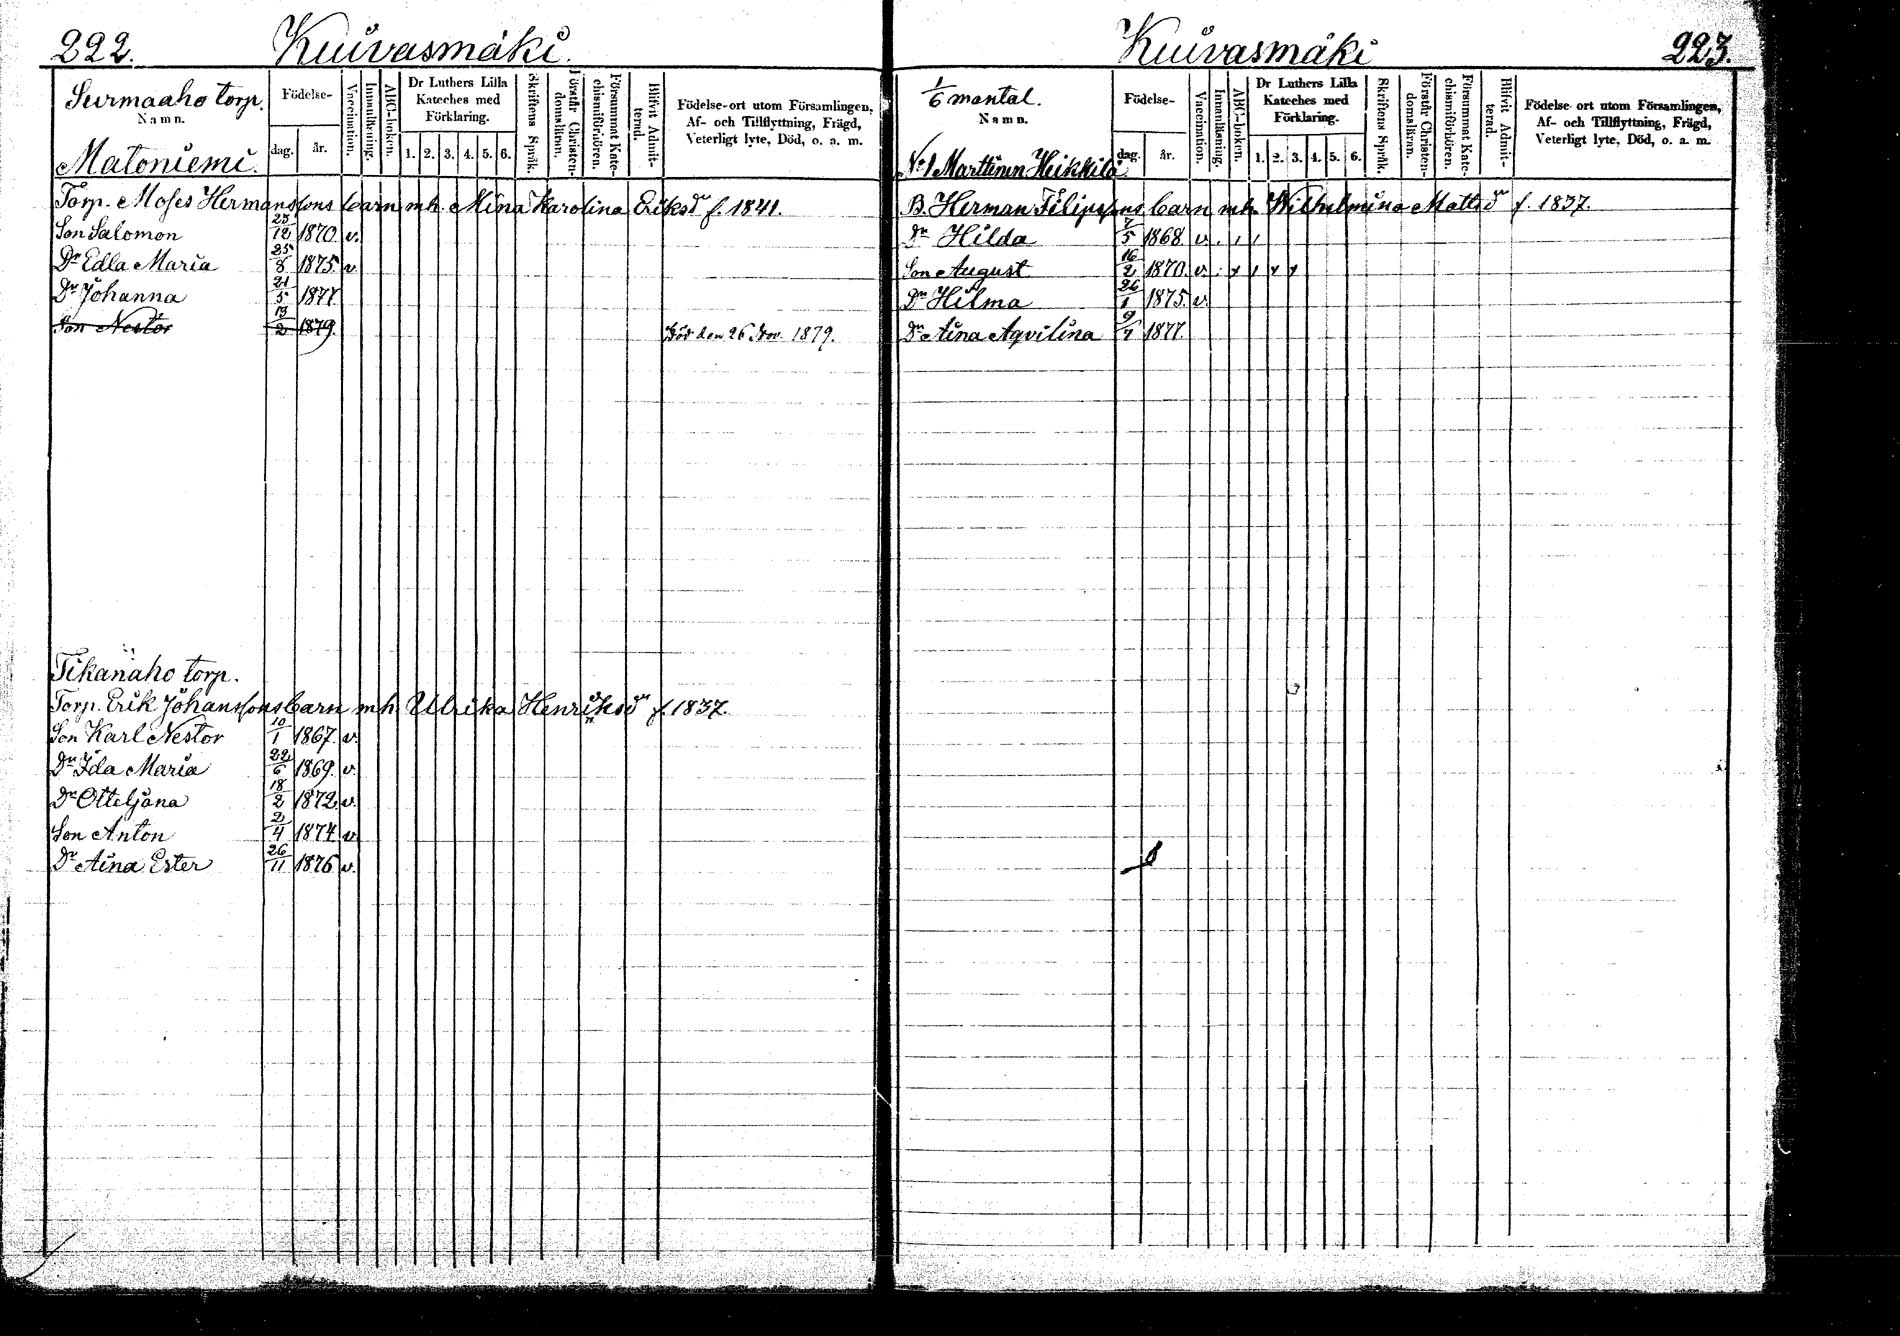 222. Kuivasmäki.
Surmaaho torp.
Namn.
Matoniemi.
Födelse-
dag. år.
Vaccination.
Innanläsning.
ABC-boken.
Dr Luthers Lilla
Kateches med
Förklaring.
1. 2. 3. 4. 5. 6.
Skriftens Språk.
Förstår Christen-
domsläran.
Försummat Kate-
chismiförhören.
Blifvit Admit-
terad.
Födelse-ort utom Församlingen,
Af- och Tillflyttning, Frägd,
Veterligt lyte, Död, o. a. m.
Torp. Moses Hermanssons barn mh. Mina Karolina Eriksdr f. 1841.
Son Salomon 23/12 1870. v.
Dr Edla Maria 25/8 1875. v.
Dr Johanna 21/5 1877.
Son Nestor 13/2 1879. Död den 26 Nov. 1879.
Tikanaho torp.
Torp. Erik Johanssons barn mh Ulrika Henriksdr f. 1837.
Son Karl Nestor 10/1 1867. v.
Dr Ida Maria 22/6 1869. v.
Dr Otteljana 18/2 1872. v.
Son Anton 2/4 1874 v.
Dr Aina Ester 26/11 1876 v.
Kuivasmäki 223.
1/6 mantal.
Namn.
No 1 Marttinen Heikkilä
Födelse-
dag. år.
Vaccination.
Innanläsning.
ABC-boken.
Dr Luthers Lilla
Kateches med
Förklaring.
1. 2. 3. 4. 5. 6.
Skriftens Språk.
Förstår Christen-
domsläran.
Försummat Kate-
chismiförhören.
Blifvit Admit-
terad.
Födelse-ort utom Församlingen,
Af- och Tillflyttning, Frägd,
Veterligt lyte, Död, o. a. m.
B. Herman Filipssons barn mh. Wilhelmina Mattsdr f. 1837.
Dr Hilda 7/5 1868 v.
Son August 16/2 1870. v.
Dr Hilma 26/1 1875. v.
Dr Aina Aqvilina 9/7 1877.